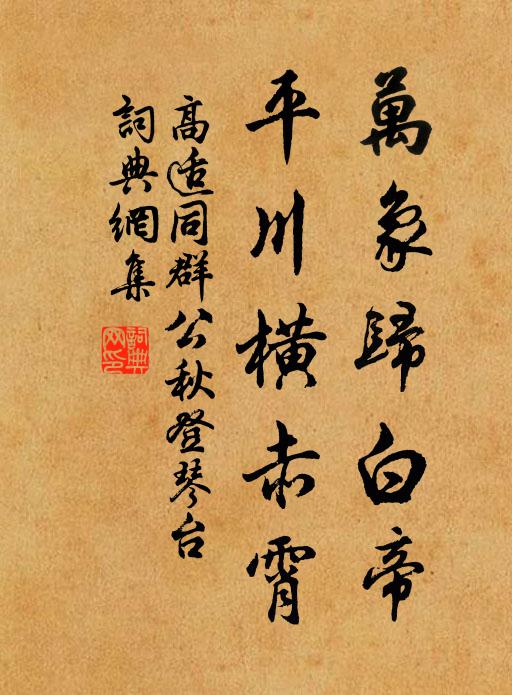 萬象歸白帝
平川橫赤霄
高适同群公秋登琴台
詞典網集
詞典
网印